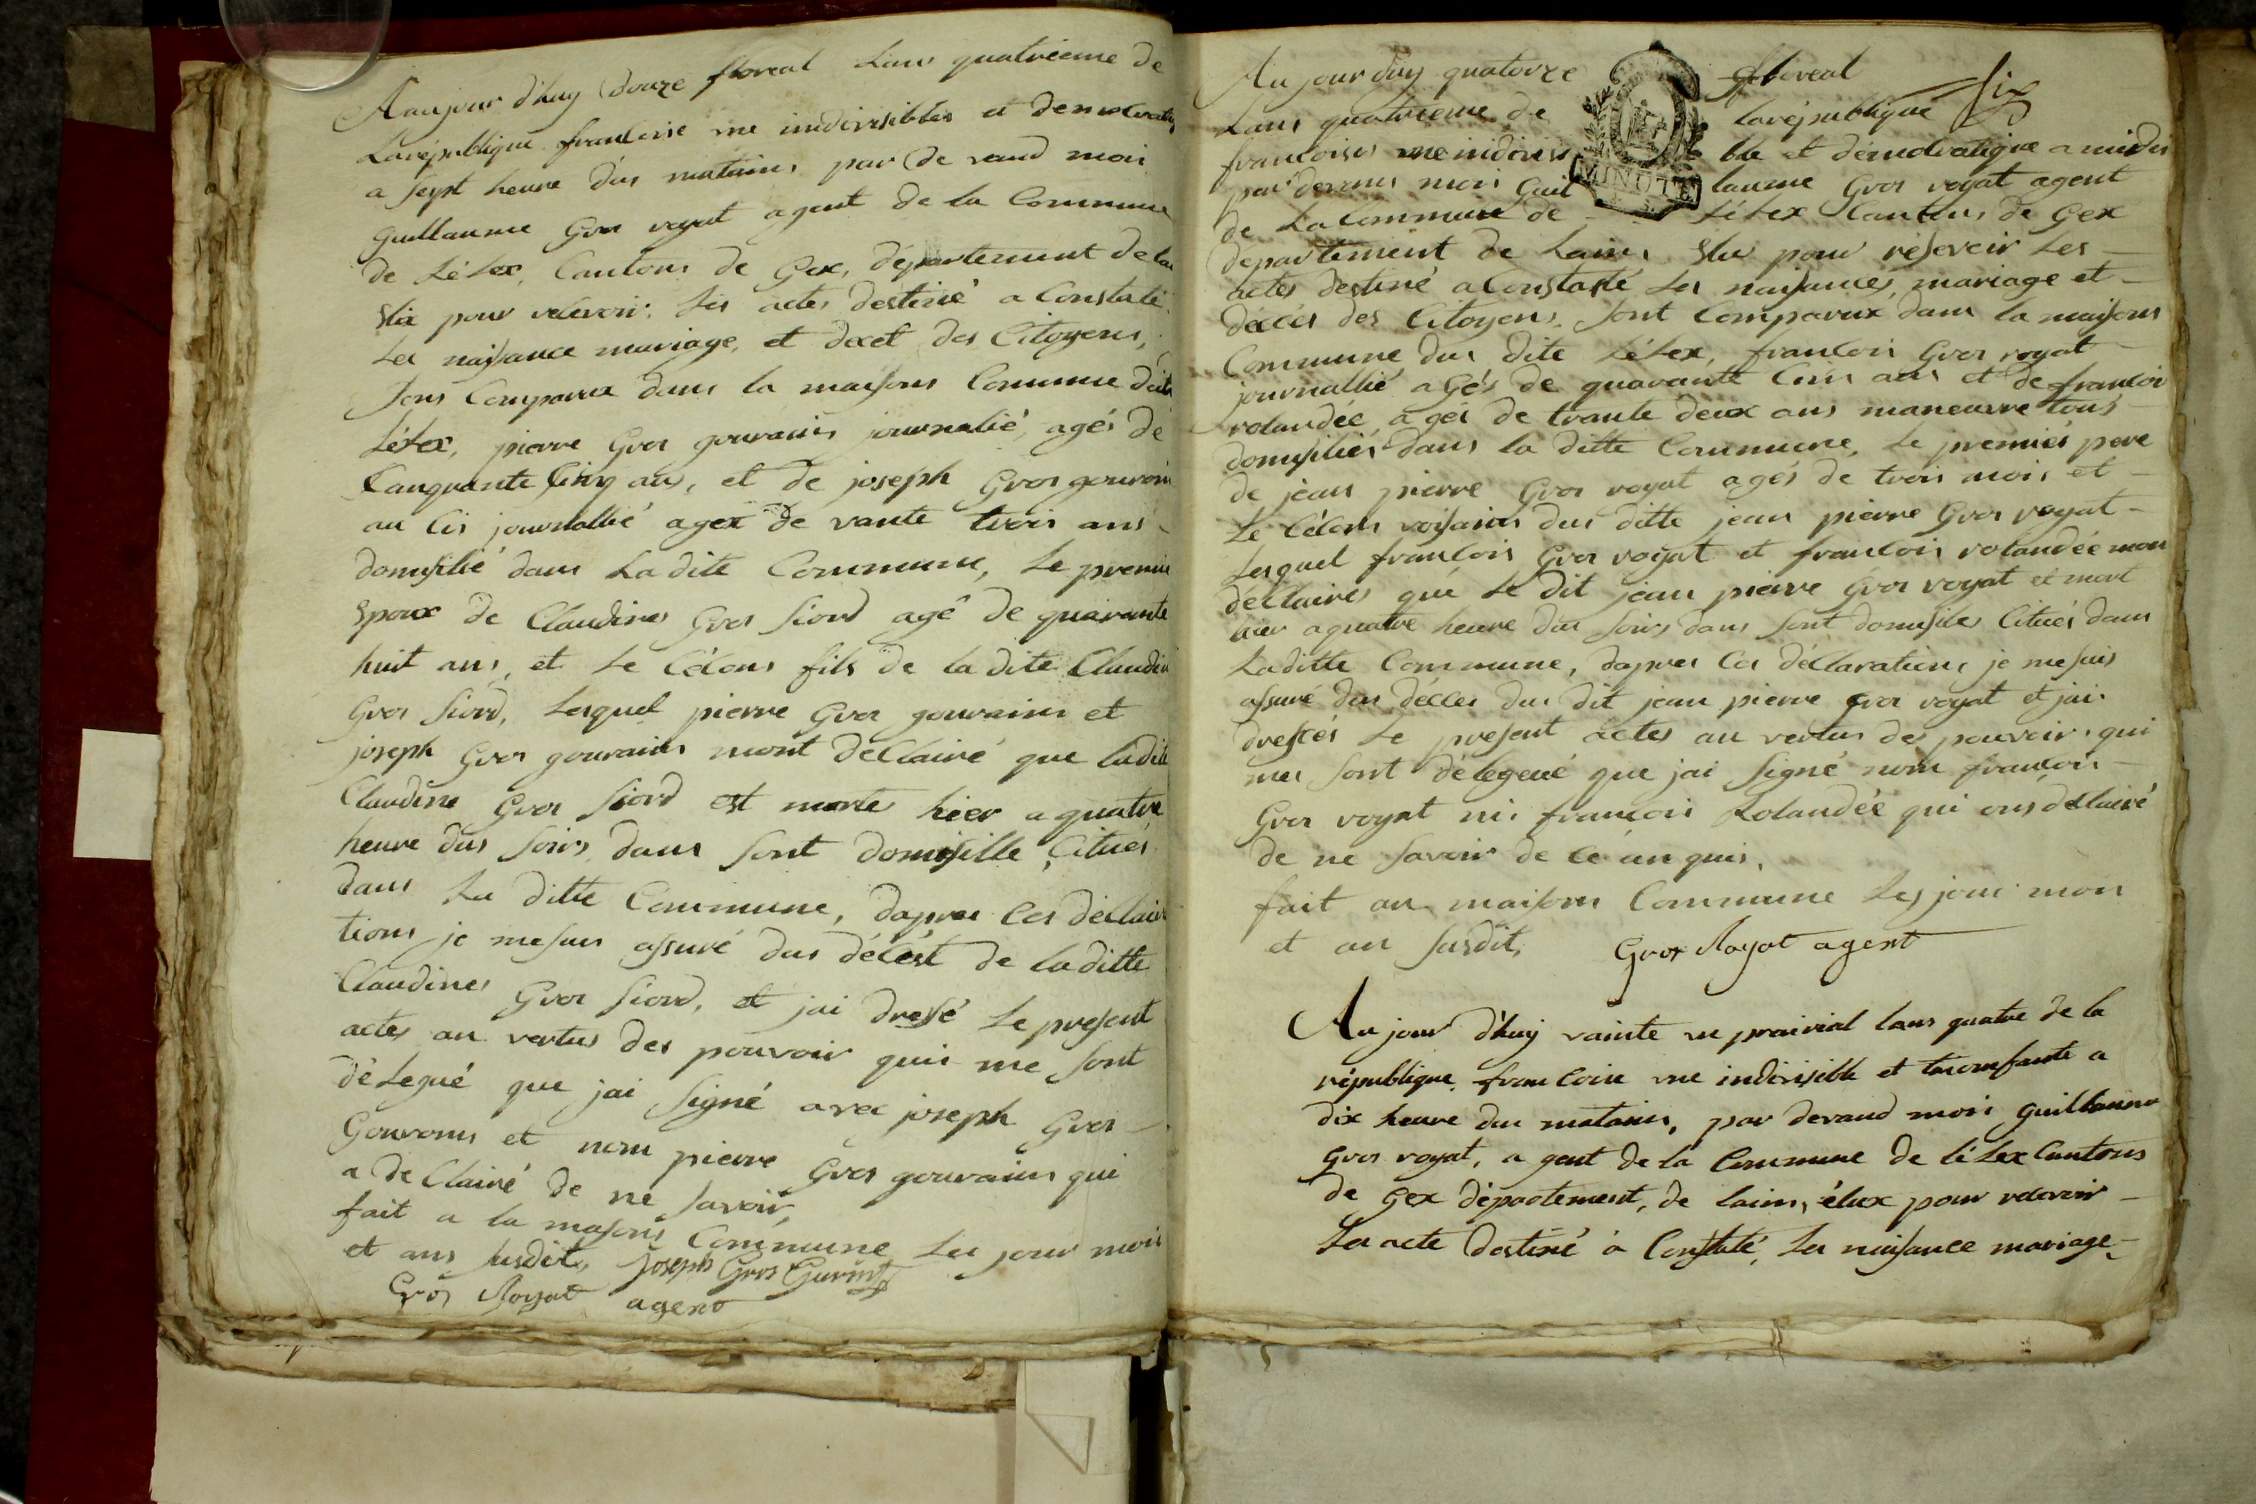 Aaujour d'huy douze floreal lans quatrieme de
Larépublique francoise une indivisibles et democratiq
a sept heure dus matains par de vand moi
guillaume Gros royat agent de la Commune
de Lélex, Cantons de Gex, département de lai
slu pour recevoir les actes destiné a Constaté
Les naissance mariage, et decet des Citoyens,
sons Comparux dans la maisons Commune dudit
Lélex, pierre Gros gourains journalié, agés de
Canquante Cinq ans, et de joseph Gros gourain
au Cis journallié agex de vante trois ans
domisilié dans Ladite Commune, Le premie
Epoux de Claudines Gros Siord agé de quarante
huit ans, et Le Cécons fils de la dite Claudin
Gros Siord, Lesquel pierre Gros gourains et
joseph Gros gourains mont déClairé que ladit
Claudine Gros Siord est morte hier a quatre
heure dus soirs dans sont domisille Citués
dans La ditte Commune, dapres Ces déclair
tions je mesuis assuré dus décést de laditte
Claudines Gros Siord, et jai dressé Le present
actes au vertus des pouvoir quis me sont
délegué que jai Signé avec joseph Gros
Gourains et nom pierre Gros gourains qui
a deClairé de ne savoir,
fait a la maisons Commune Les jour mois
et ans susdit, Joseph Gros Gurin
Gros Royat agent
Au jourduy quatorze floreal
Lans quatrieme de larépublique six
francoises une indivisi ble et démocratique a midis
par devans moi Guil laume Gros royat agent
de La Commune de Lélex Cantons de Gex
departement de Lains Slu pour resevoir Les
actes destiné a Constasté Les naissances, mariage et
décés des Citoyens, sont Comparux dans la maisons
Commune dus dite Lélex, francois Gros royat
journallié agés de quarante Cins ans et de francois
rolandée, agés de trante deux ans maneuvre tous
domisiliés dans la ditte Commune, Le premiés pere
de jean pierre Gros royat agés de trois mois et
Le Cécons voisains dus ditte jean pierre Gros royat
Lesquel francois Gros royat et francois rolandée mon
déclairés que Le dit jean pierre Gros royat et mort
hier a quatre heure dus soirs dans sont domisiles Citués dans
Laditte Commune, dapres Ces déClarations je mesuis
assuré dus décces dus dit jean pierre Gros royat et jai
dressés Le present actes au vertus des pouvoirs qui
mes sont délegeué que jai signé nom francois
Gros royat ni francois Rolandée qui ons déclairé
de ne savoir de Ce anquis,
fait au maisons Commune Les jour mon
et an susdit, Gros Royat agent
Au jour d'huy vainte un prairial lans quatre de la
république francoise une indivisible et triomfante a
dix heure dus matains, par devand mois guillaume
Gros royat, a gent de la Commune de lélex Cantons
de Gex département, de lains, élux pour recevoir
Les acte destiné à Constaté, Les naissance mariage
MINUTE